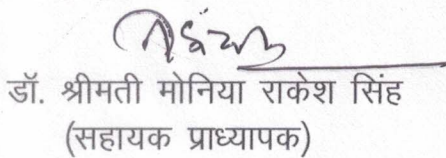 डॉ. श्रीमती मोनिया राकेश सिंह
(सहायक प्राध्यापक)